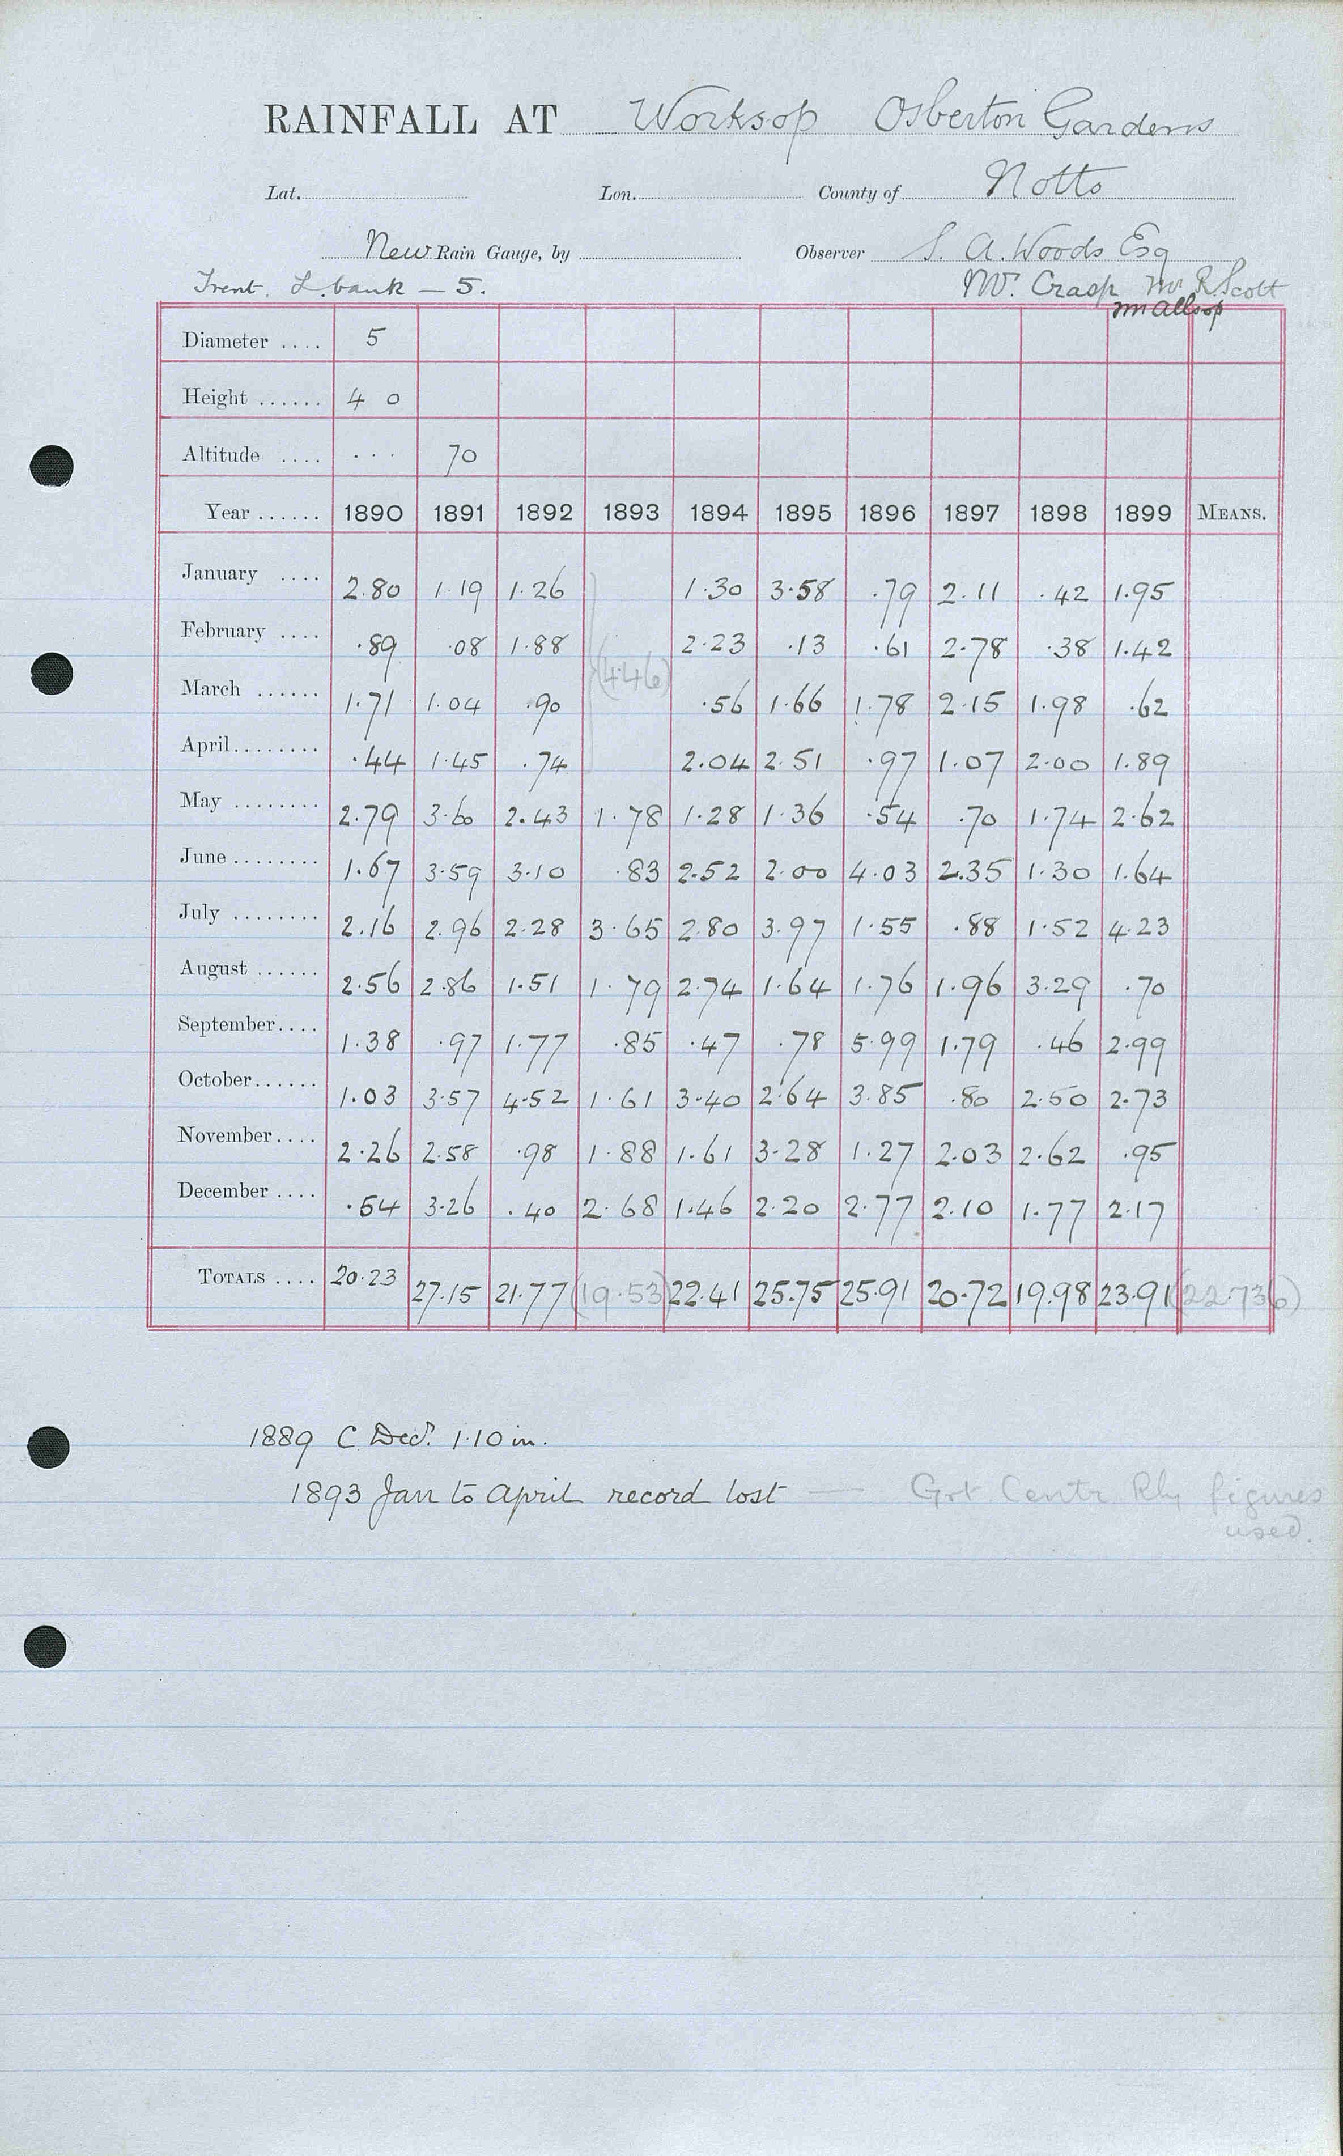 RAINFALL AT Worksop Osberton Gardens
Lat. Lon. County of Notts
New Rain Gauge, by Observer S. A. Woods Esq
Trent. L. bank — 5. Mr. Crasp Mr R Scott
Mr Allsop
Diameter .... 5
Height ...... 4 0
Altitude .... ... 70
Year ...... 1890 1891 1892 1893 1894 1895 1896 1897 1898 1899 MEANS.
January .... 2.80 1.19 1.26 1.30 3.58 .79 2.11 .42 1.95
February .... .89 .08 1.88 2.23 .13 .61 2.78 .38 1.42
(4.46)
March ...... 1.71 1.04 .90 .56 1.66 1.78 2.15 1.98 .62
April ........ .44 1.45 .74 2.04 2.51 .97 1.07 2.00 1.89
May ........ 2.79 3.60 2.43 1.78 1.28 1.36 .54 .70 1.74 2.62
June ........ 1.67 3.59 3.10 .83 2.52 2.00 4.03 2.35 1.30 1.64
July ........ 2.16 2.96 2.28 3.65 2.80 3.97 1.55 .88 1.52 4.23
August ...... 2.56 2.86 1.51 1.79 2.74 1.64 1.76 1.96 3.29 .70
September .... 1.38 .97 1.77 .85 .47 .78 5.99 1.79 .46 2.99
October ...... 1.03 3.57 4.52 1.61 3.40 2.64 3.85 .80 2.50 2.73
November .... 2.26 2.58 .98 1.88 1.61 3.28 1.27 2.03 2.62 .95
December .... .54 3.26 .40 2.68 1.46 2.20 2.77 2.10 1.77 2.17
TOTALS .... 20.23 27.15 21.77 (19.53) 22.41 25.75 25.91 20.72 19.98 23.91 (22.736)
1889 C Decr. 1.10 in.
1893 Jan to April record lost — Grt Centr. Rly figures
used.